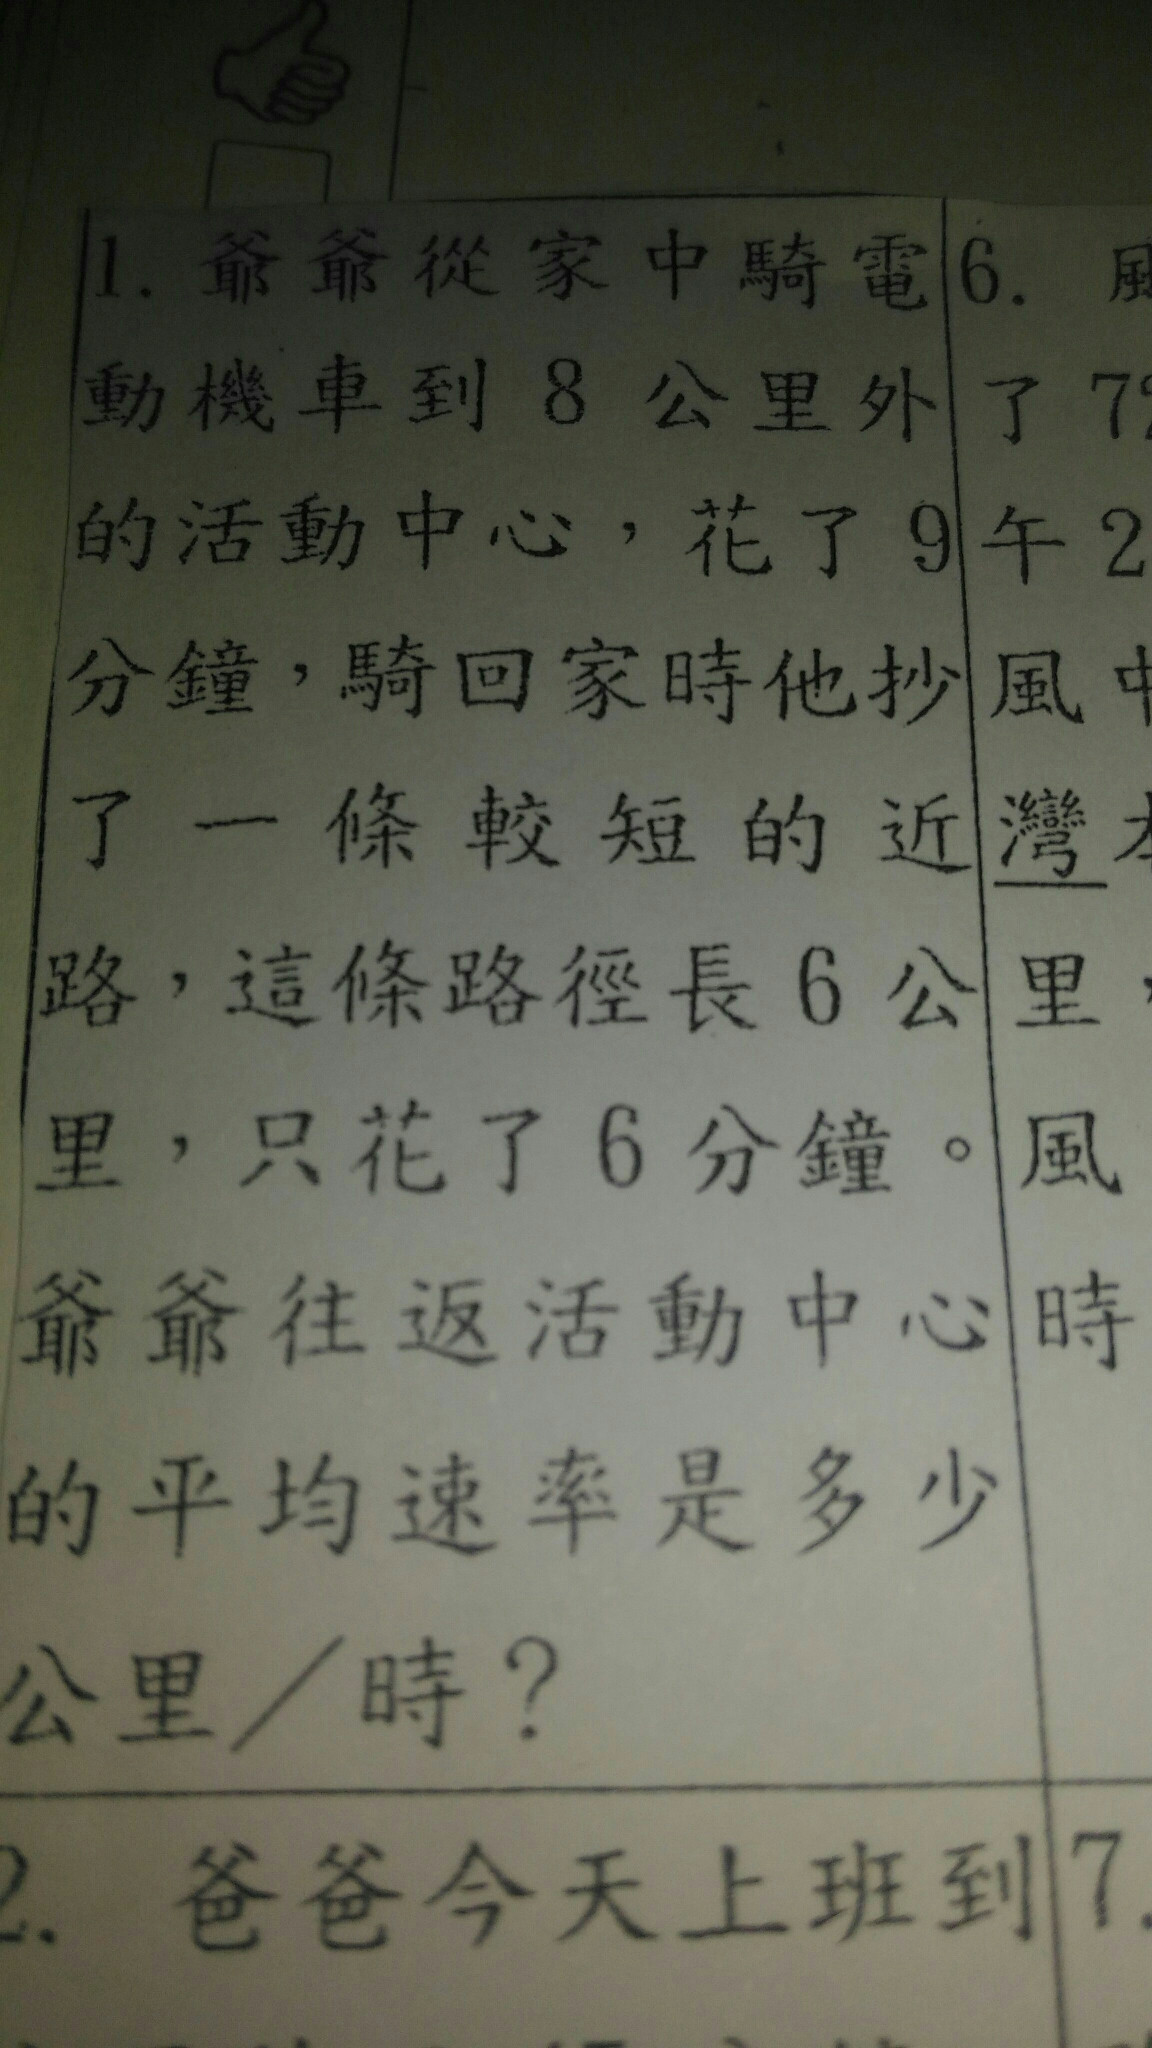 1. 爺爺從家中騎電
動機車到 8 公里外
的活動中心，花了 9
分鐘，騎回家時他抄
了一條較短的近
路，這條路徑長 6 公
里，只花了 6 分鐘。
爺爺往返活動中心
的平均速率是多少
公里／時？
2. 爸爸今天上班到
6.
了 7
午 2
風中
灣
里，
風
時
7.